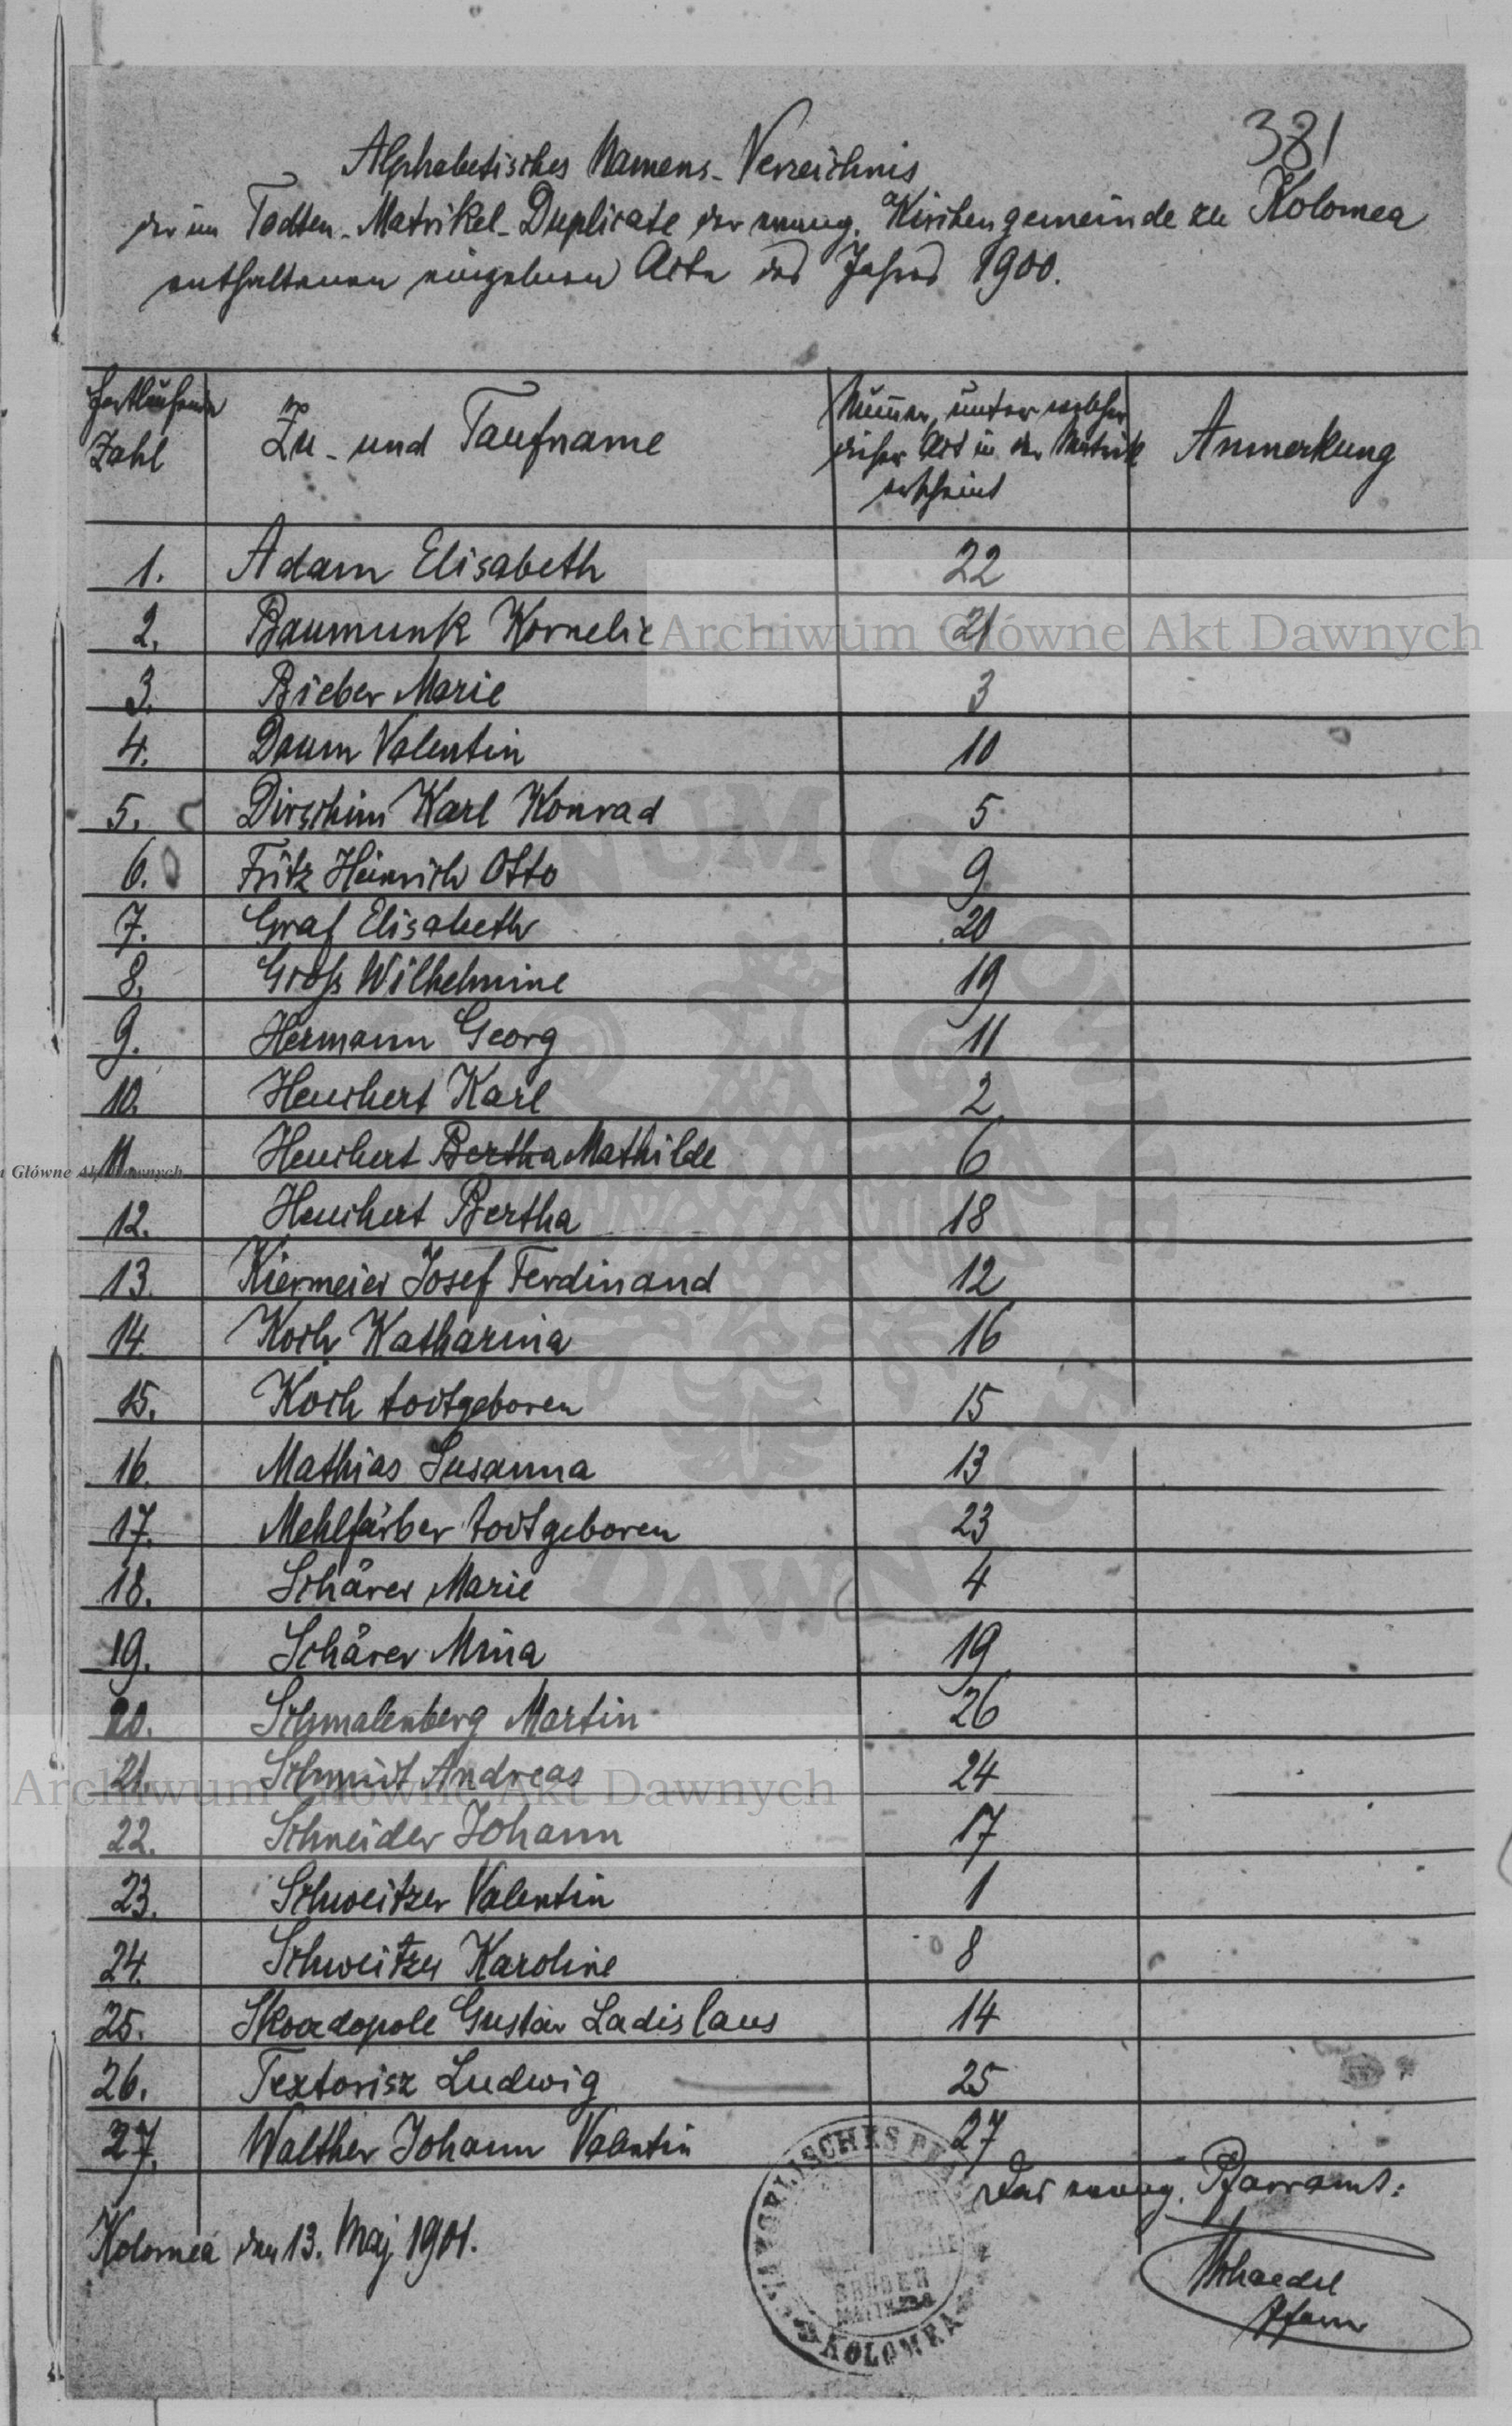 381
Alphabetisches Namens-Verzeichnis
der im Todten-Matrikel-Duplicate der evang. Kirchengemeinde zu Kolomea
enthaltenen einzelnen Acte des Jahres 1900.
Fortlaufende Zahl
Zu- und Taufname
Nummer, unter welcher dieser Act in der Matrik erscheint
Anmerkung
1. Adam Elisabeth 22
2. Baumunk Kornelie 21
3. Bieber Marie 3
4. Daum Valentin 10
5. Dirschim Karl Konrad 5
6. Fritz Heinrich Otto 9
7. Graf Elisabeth 20
8. Groß Wilhelmine 19
9. Hermann Georg 11
10. Heuchert Karl 2
11. Heuchert Bertha Mathilde 6
12. Heuchert Bertha 18
13. Kiermeier Josef Ferdinand 12
14. Koch Katharina 16
15. Koch todtgeboren 15
16. Mathias Susanna 13
17. Mehlfärber todtgeboren 23
18. Schärer Marie 4
19. Schärer Mina 19
20. Schmalenberg Martin 26
21. Schmidt Andreas 24
22. Schneider Johann 17
23. Schweitzer Valentin 1
24. Schweitzer Karoline 8
25. Skoadopole Gustav Ladislaus 14
26. Textorisz Ludwig 25
27. Walther Johann Valentin 27
Das evang. Pfarramt:
Kolomea den 13. Maj 1901.
Pfarrer
KOLOMEA
Archiwum Główne Akt Dawnych
Główne Akt Dawnych
Archiwum Główne Akt Dawnych